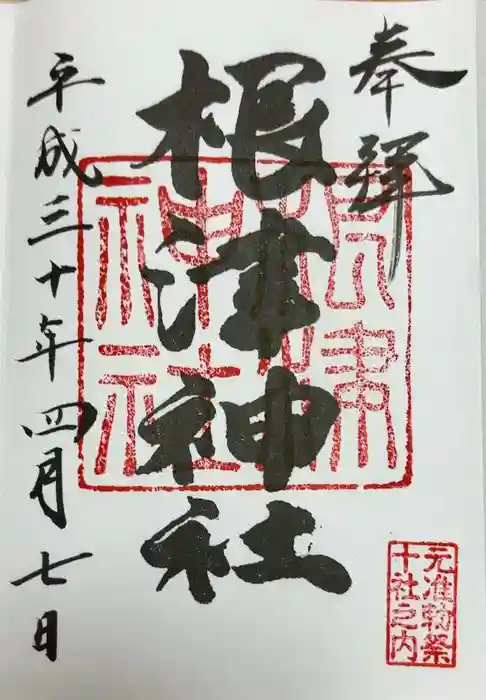 奉拝
根津神社
根津神社
平成三十年四月七日
元准勅祭
十社之内